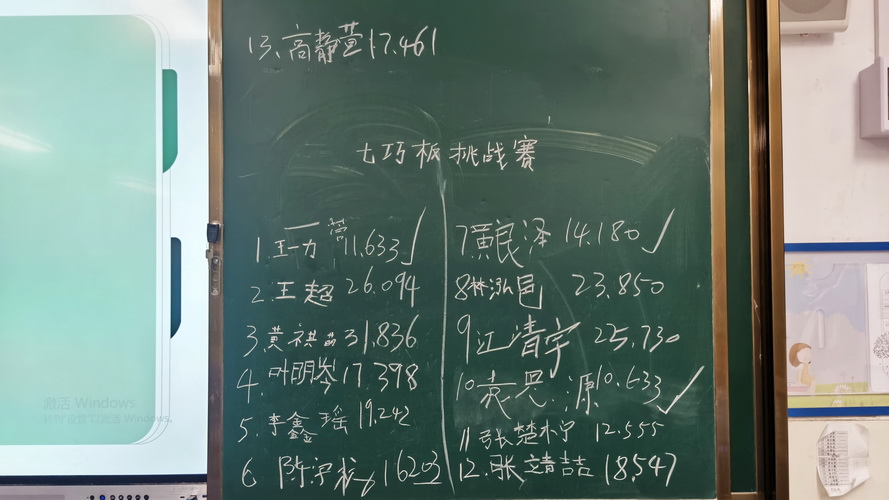 13.高静萱17.461
七巧板挑战赛
1.王一力 11.633√
2.王超 26.094
3黄祺苗31.836
4.叶明岑17.398
5.李鑫瑶 19.242
6 陈 16203
7黄良泽 14.180√
8林泓邑 23.850
9江清宇 225.730
10.袁思源10.633√
11张楚柠 12.555
12.张靖喆 18.547
激活 Windows
转到"设置"以激活 Windows。